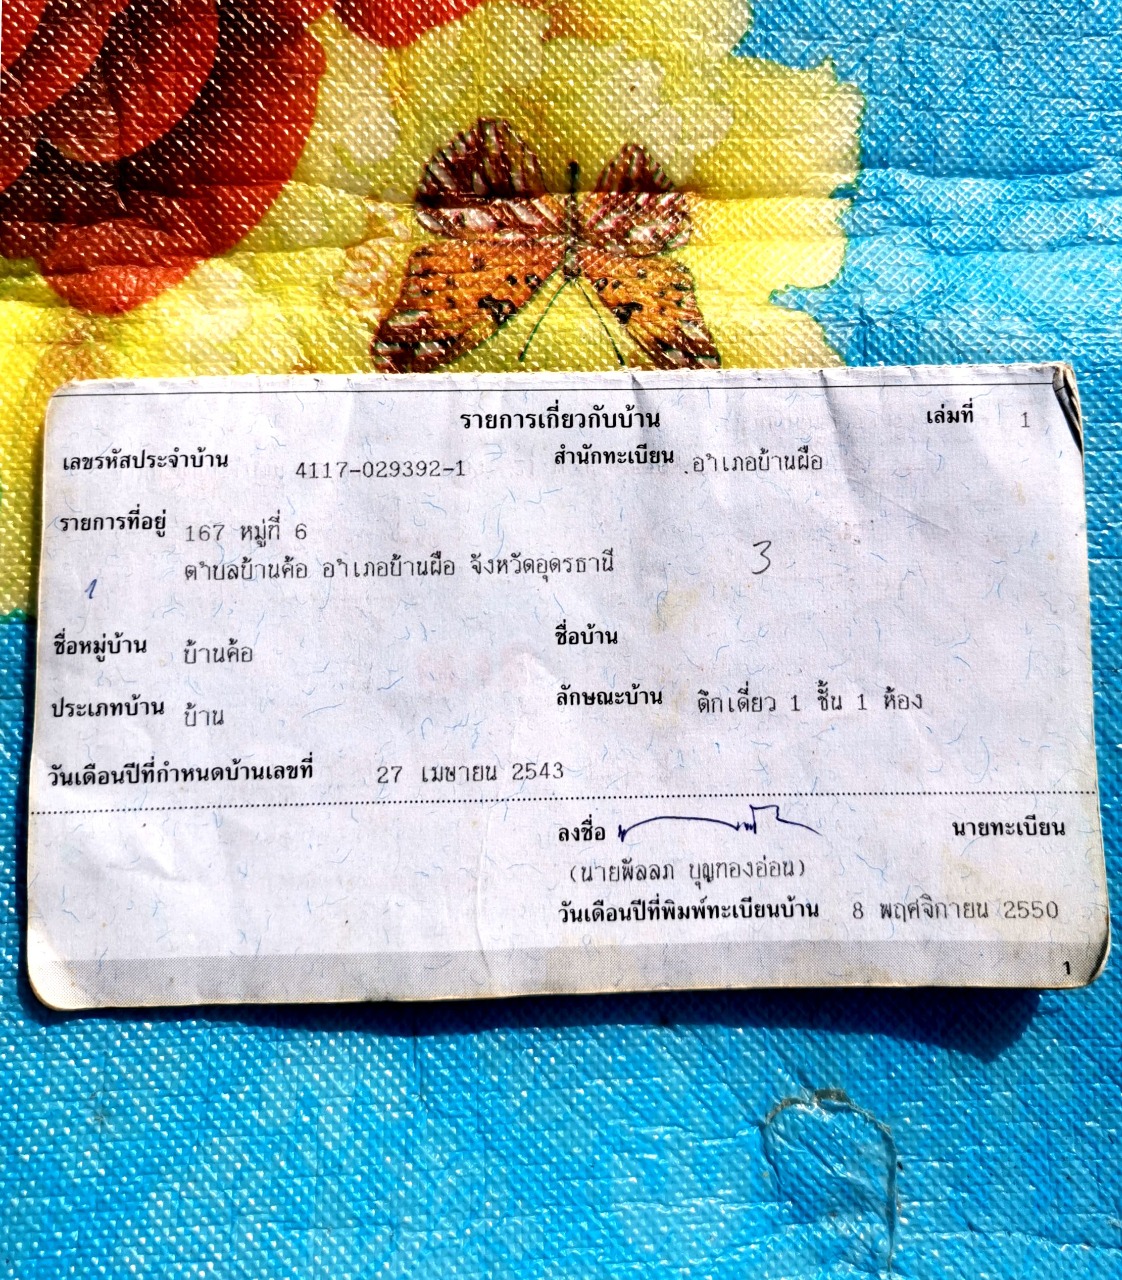 รายการเกี่ยวกับบ้าน เล่มที่ 1
เลขรหัสประจำบ้าน 4117-029392-1 สำนักทะเบียน อำเภอบ้านผือ
รายการที่อยู่ 167 หมู่ที่ 6
ตำบลบ้านค้อ อำเภอบ้านผือ จังหวัดอุดรธานี
3
1
ชื่อหมู่บ้าน บ้านค้อ ชื่อบ้าน
ประเภทบ้าน บ้าน ลักษณะบ้าน ตึกเดี่ยว 1 ชั้น 1 ห้อง
วันเดือนปีที่กำหนดบ้านเลขที่ 27 เมษายน 2543
ลงชื่อ นายทะเบียน
(นายพัลลภ บุญทองอ่อน)
วันเดือนปีที่พิมพ์ทะเบียนบ้าน 8 พฤศจิกายน 2550
1